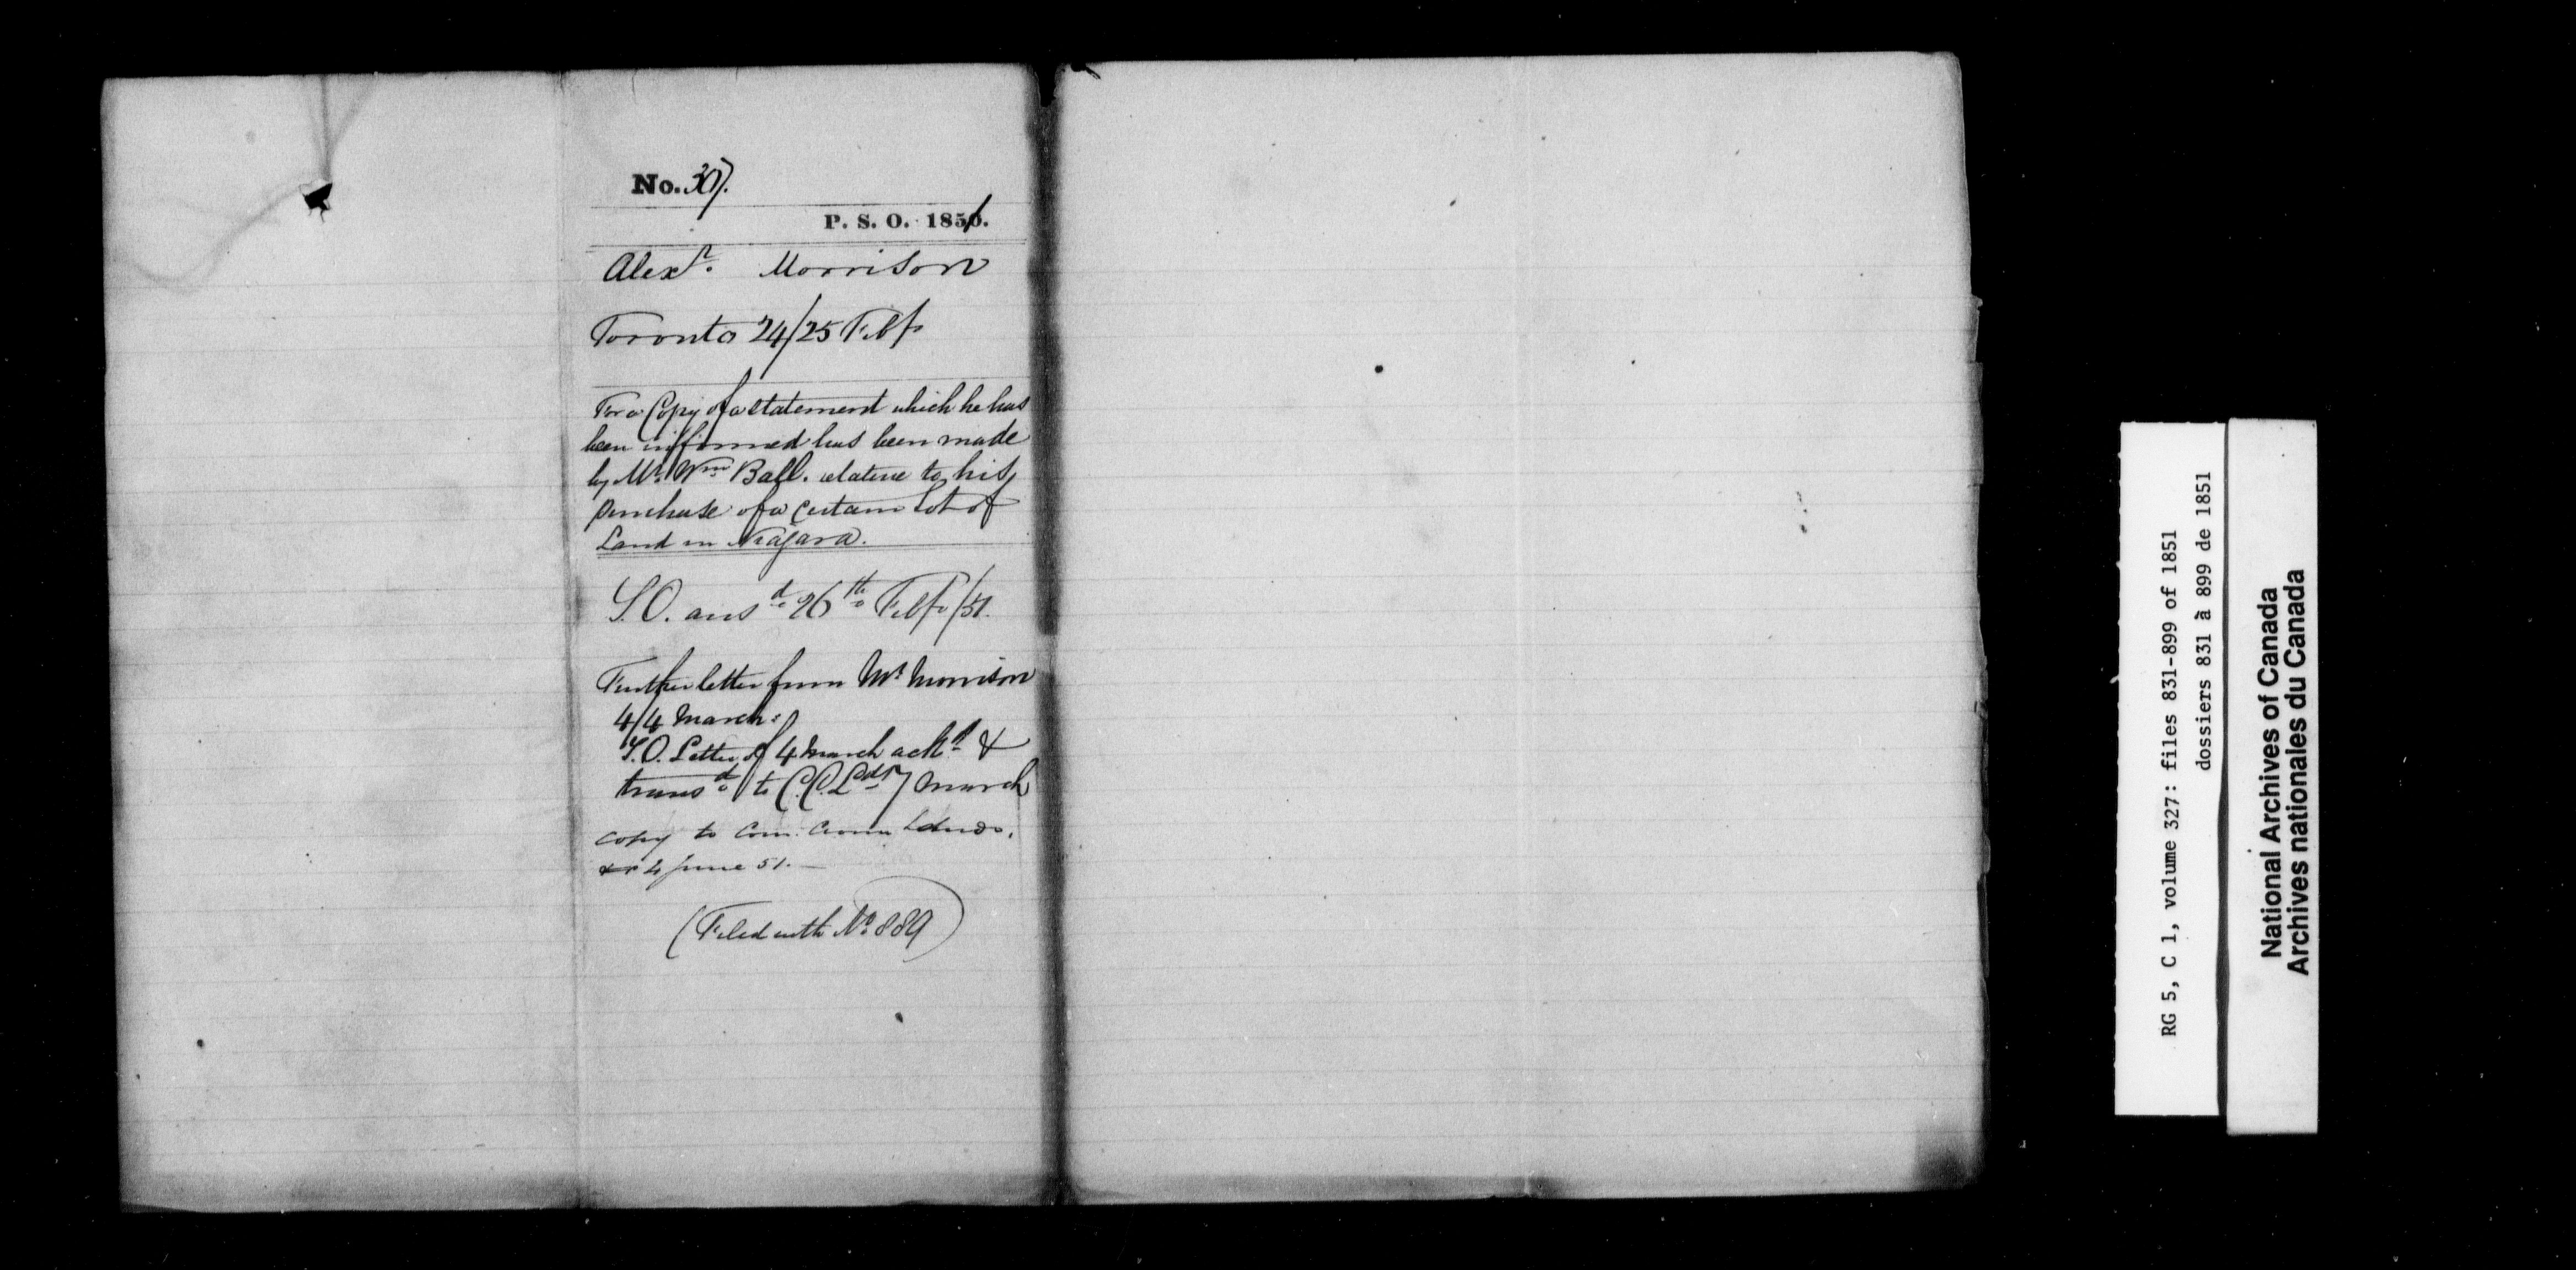 No. 307.
P. S. O. 1851.
Alexr. Morrison
Toronto 24/25 Feby
For a Copy of a statement which he has
been informed has been made
by Mr. Wm Ball. relative to his
purchase of a certain Lot of
Land in Niagara.
S.O. ansd. 26th Feby/51.
Further letter from Mr Morrison
4/4 March:
S.O. Letter of 4 March ackd &
transd. to C.C.Lds 7 March
copy to Com. Crown Lands.
4 June 51.—
(Filed with No 889)
RG 5, C 1, volume 327: files 831-899 of 1851
dossiers 831 à 899 de 1851
National Archives of Canada
Archives nationales du Canada